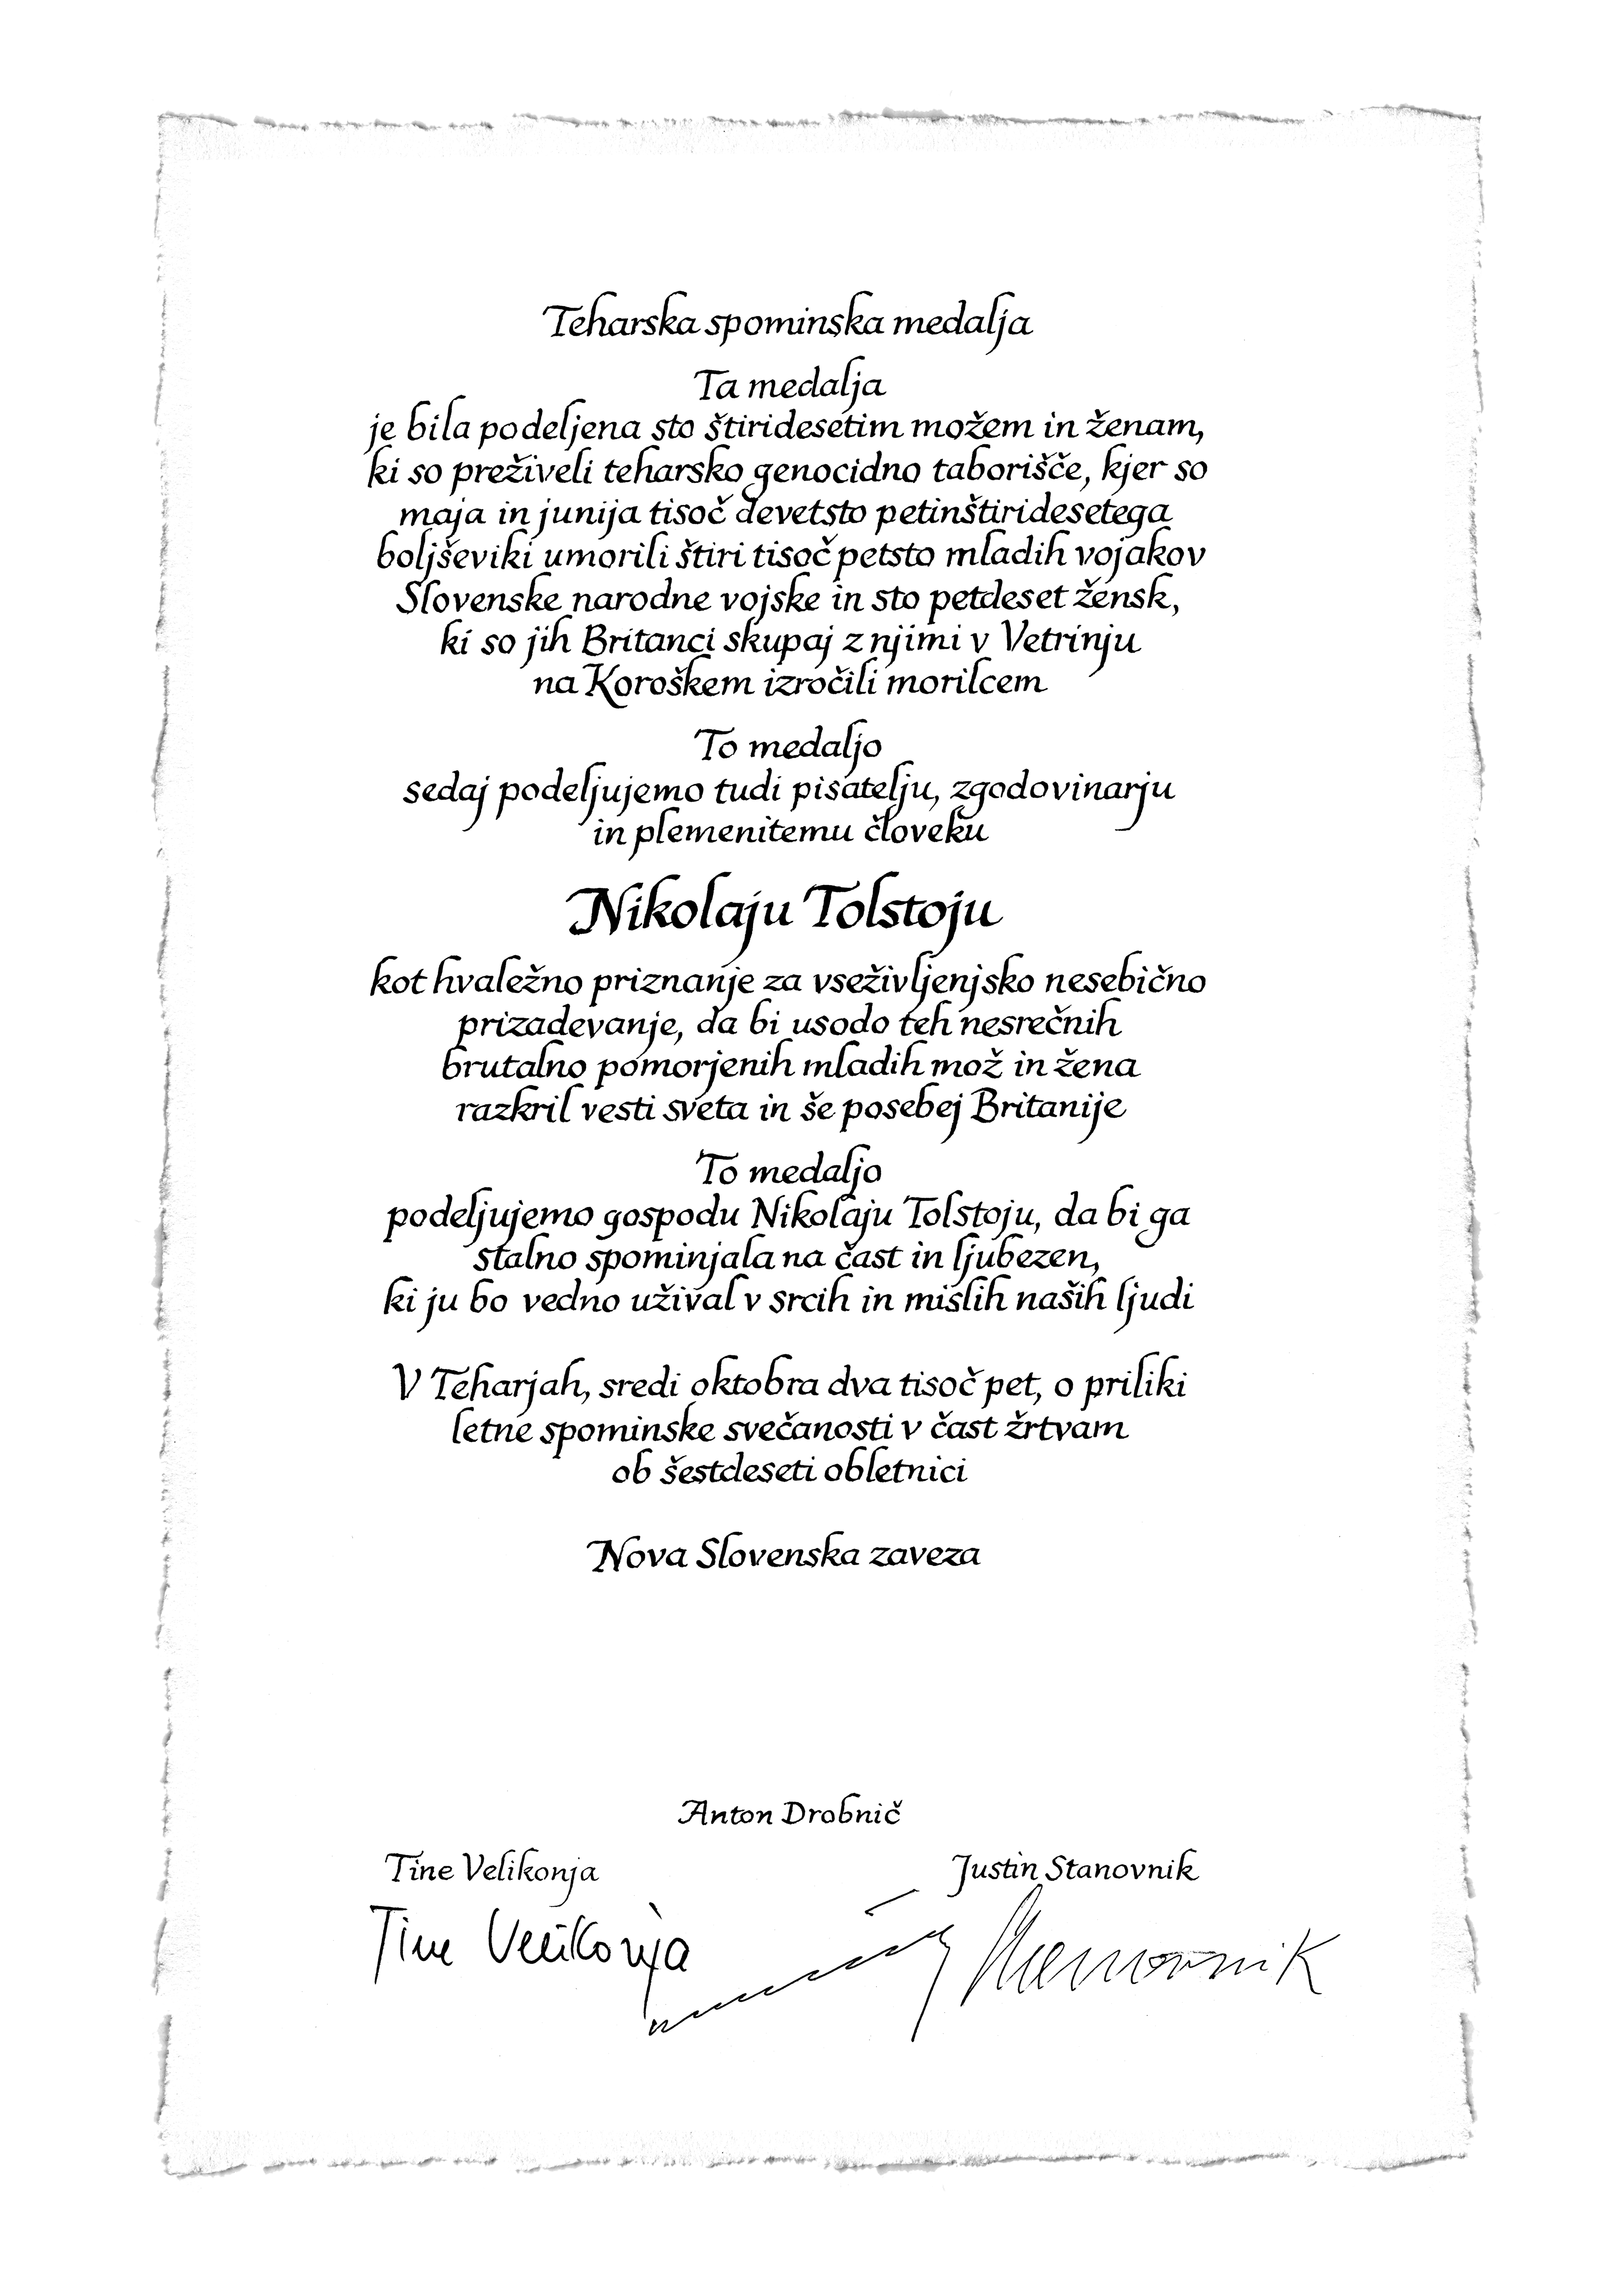 Teharska spominska medalja
Ta medalja
je bila podeljena sto štiridesetim možem in ženam,
ki so preživeli teharsko genocidno taborišče, kjer so
maja in junija tisoč devetsto petinštiridesetega
boljševiki umorili štiri tisoč petsto mladih vojakov
Slovenske narodne vojske in sto petdeset žensk,
ki so jih Britanci skupaj z njimi v Vetrinju
na Koroškem izročili morilcem
To medaljo
sedaj podeljujemo tudi pisatelju, zgodovinarju
in plemenitemu človeku
Nikolaju Tolstoju
kot hvaležno priznanje za vseživljenjsko nesebično
prizadevanje, da bi usodo teh nesrečnih
brutalno pomorjenih mladih mož in žena
razkril vesti sveta in še posebej Britanije
To medaljo
podeljujemo gospodu Nikolaju Tolstoju, da bi ga
stalno spominjala na čast in ljubezen,
ki ju bo vedno užival v srcih in mislih naših ljudi
V Teharjah, sredi oktobra dva tisoč pet, o priliki
letne spominske svečanosti v čast žrtvam
ob šestdeseti obletnici
Nova Slovenska zaveza
Anton Drobnič
Tine Velikonja Justin Stanovnik
Tine Velikonja